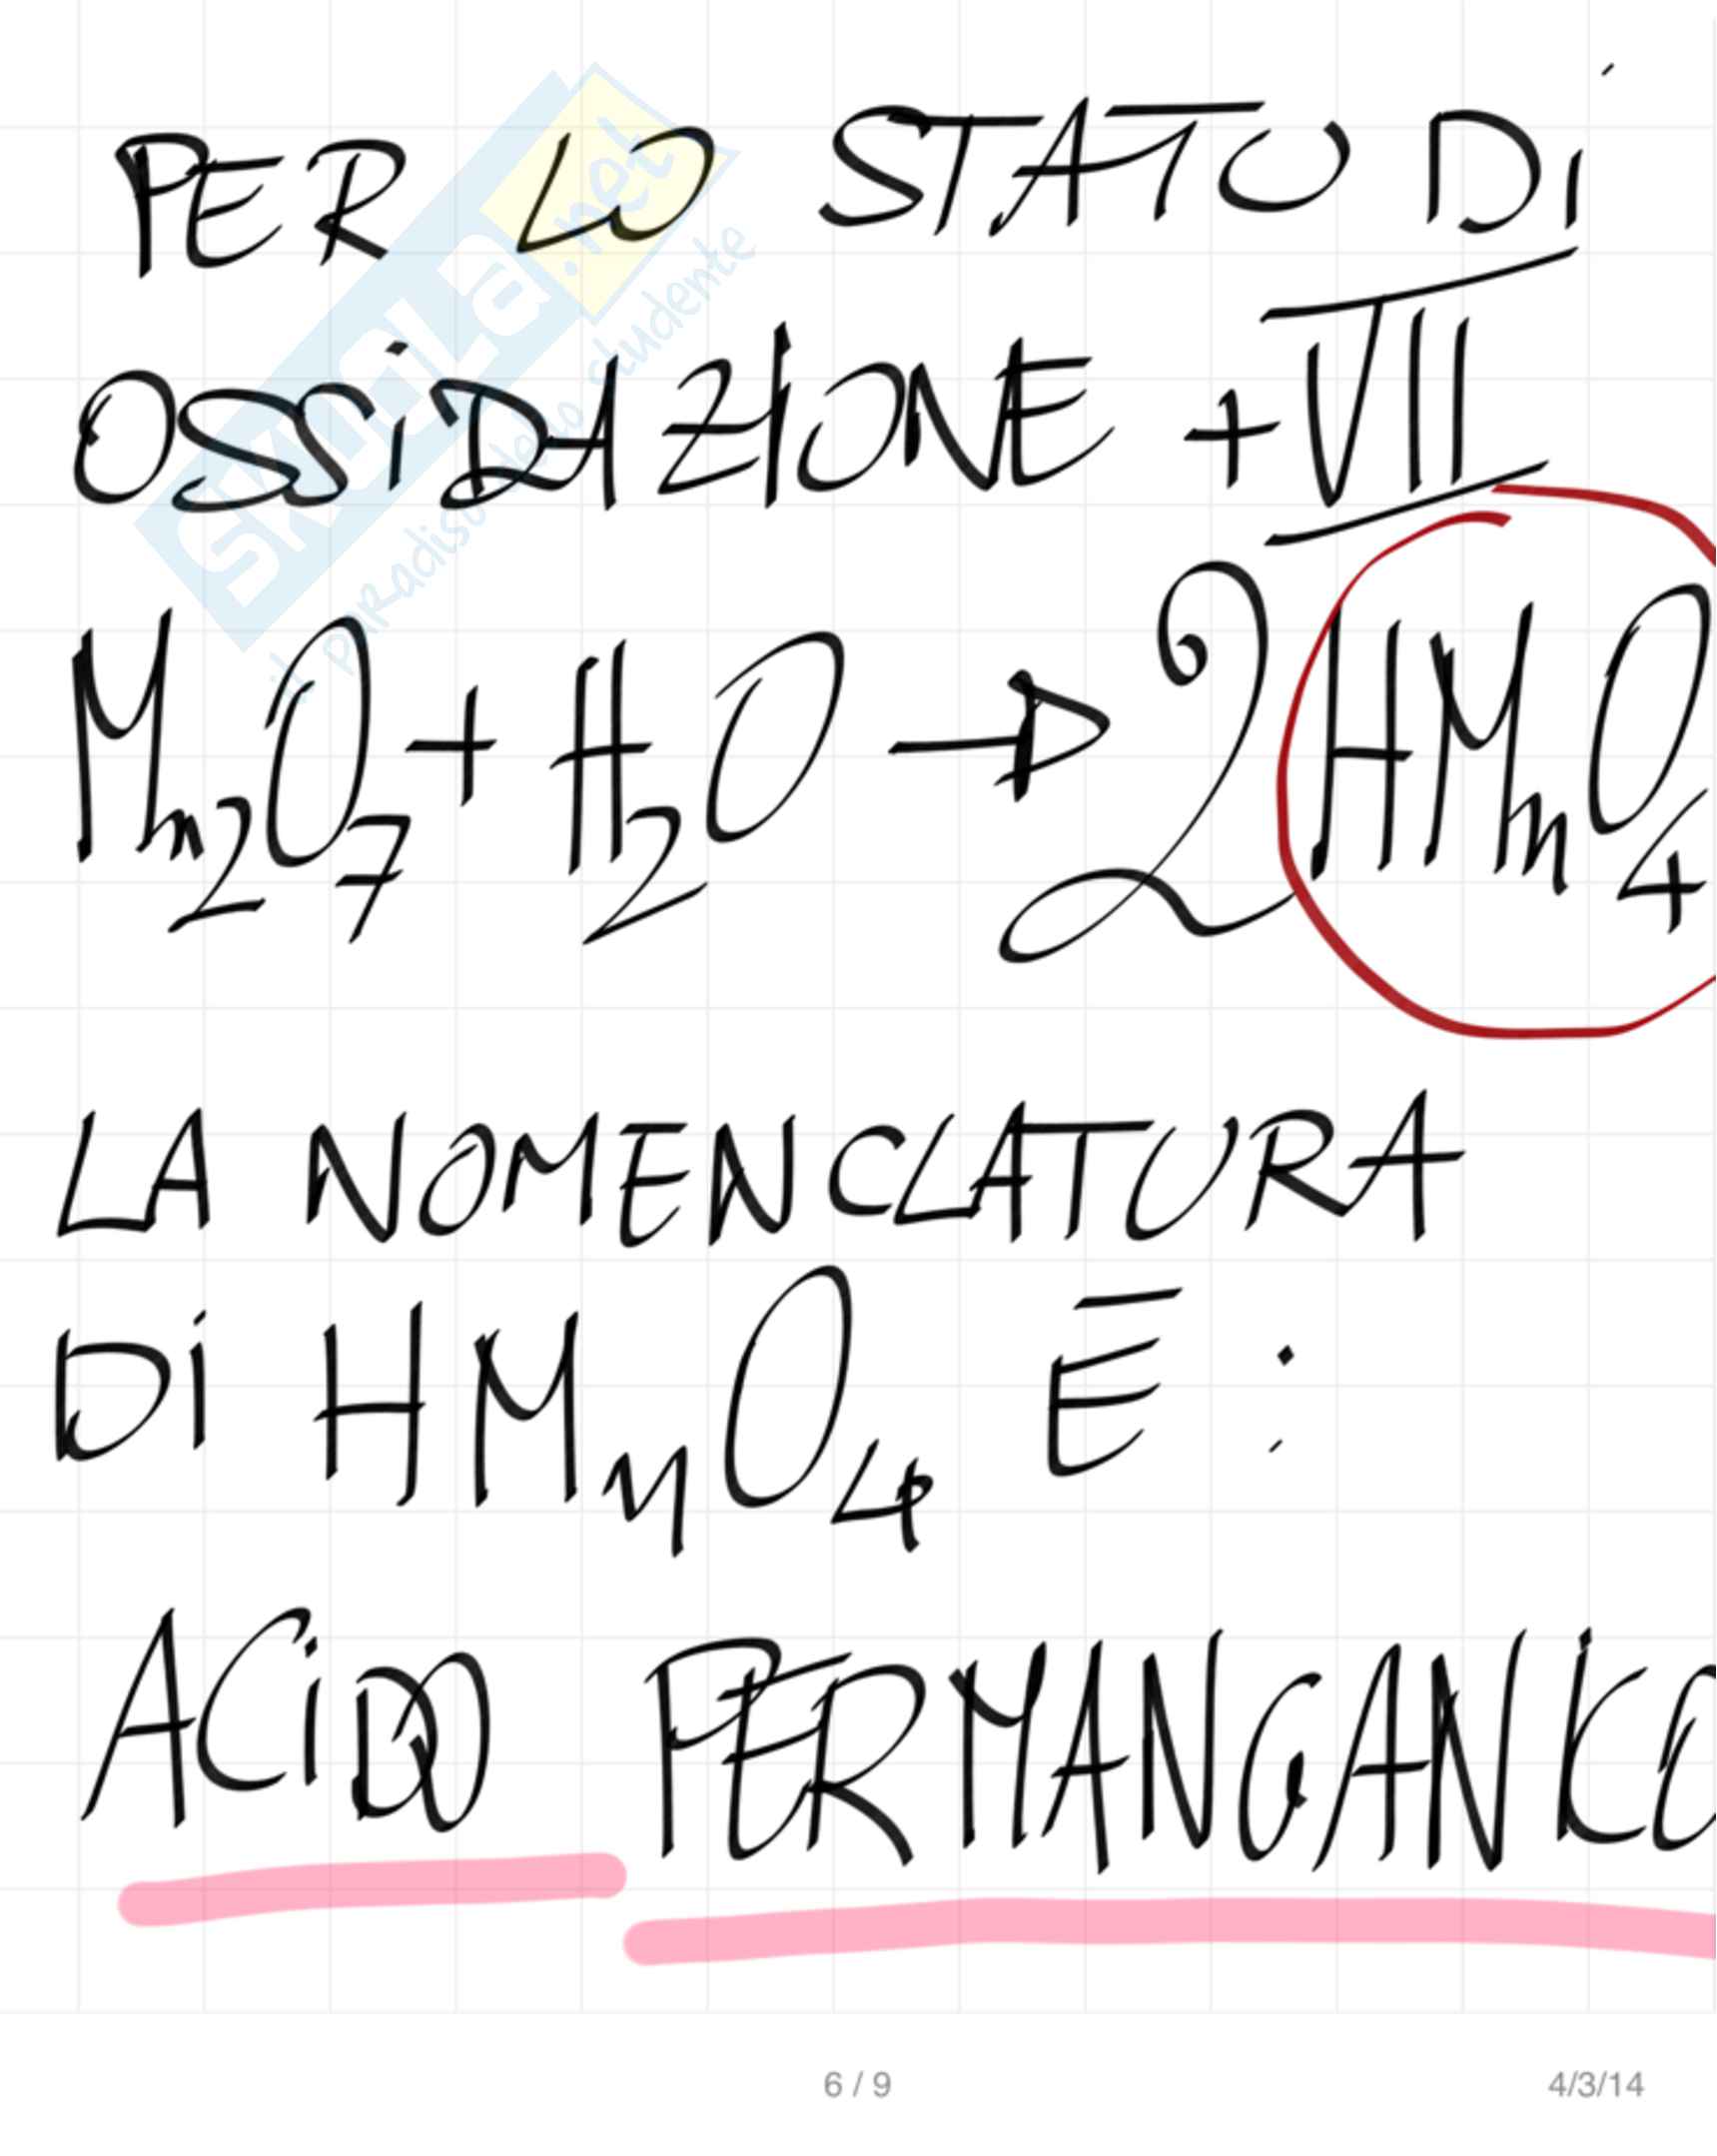 PER LO STATO Di
OSSiDAZIONE +VII
Mn₂O₇ + H₂O → 2HMnO₄
LA NOMENCLATURA
Di HMnO₄ È :
ACiDO PERMANGANICO
SKUOLA.net
il paradiso dello studente
6 / 9
4/3/14